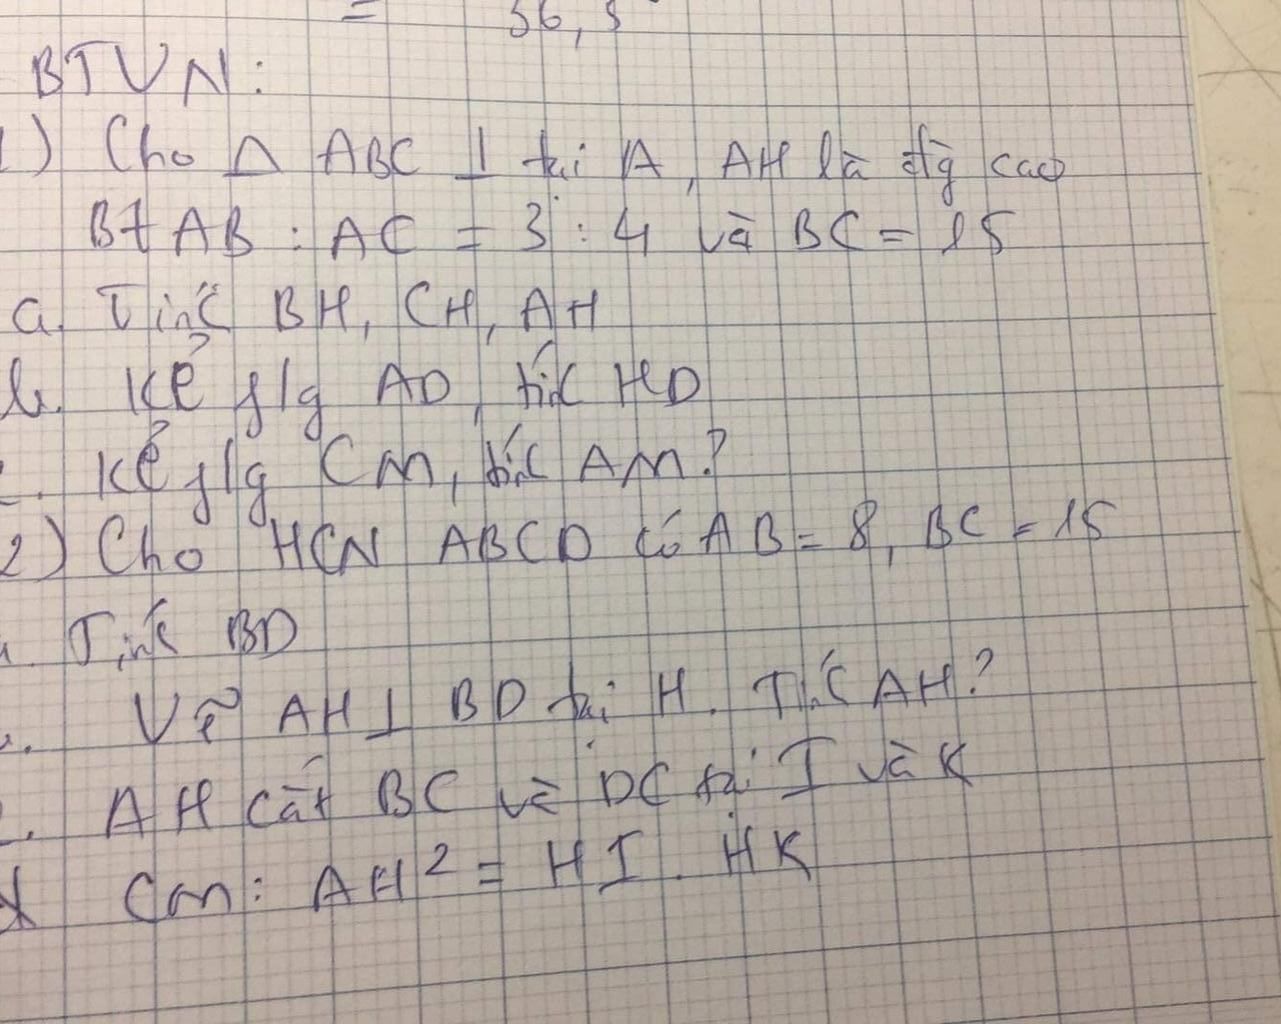 = 56,5
BTVN:
1) Cho Δ ABC ⊥ tại A, AH là đg cao
Bt AB : AC = 3 : 4 và BC = 15
a. Tính BH, CH, AH
b. Kẻ f/g AD, tính HD
c. Kẻ f/g CM, tính AM?
2) Cho HCN ABCD có AB = 8, BC = 15
a. Tính BD
b. Vẽ AH ⊥ BD tại H. Tính AH?
c. AH cắt BC và DC tại I và K
Cm: AH² = HI . HK